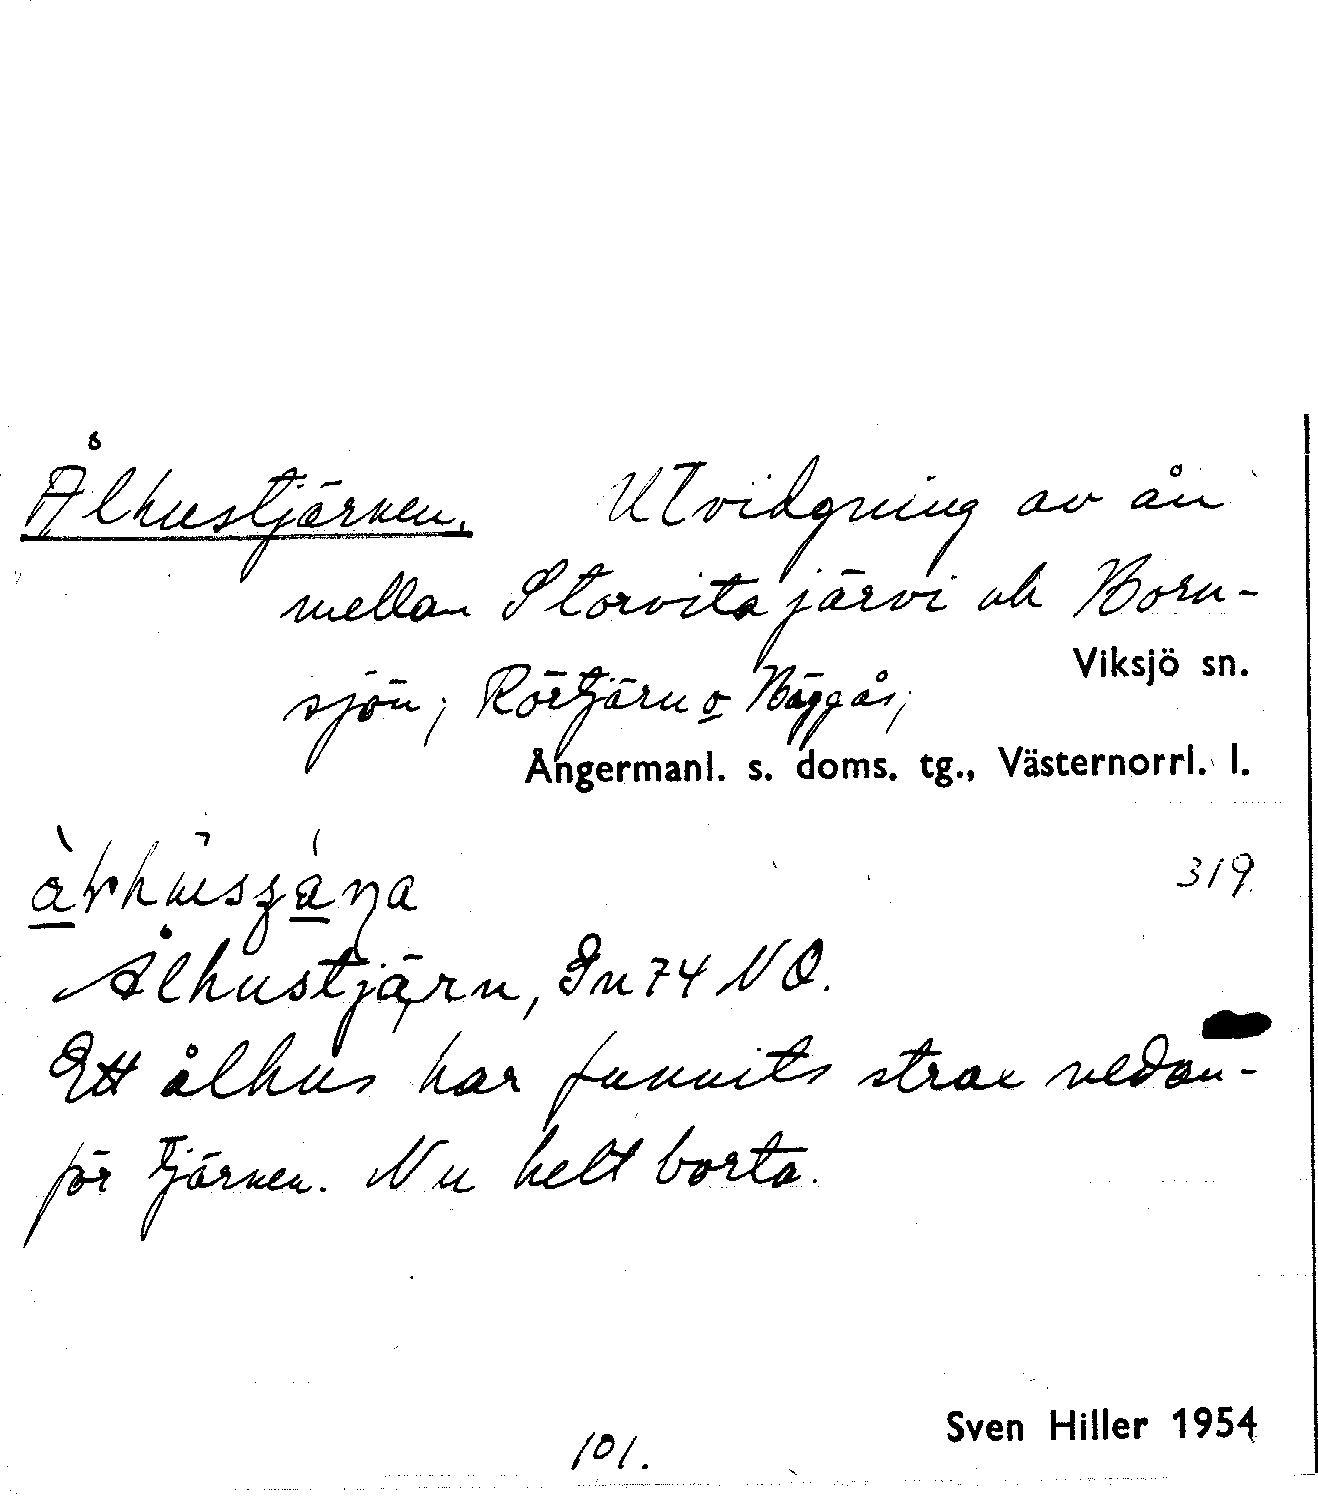 Ålhustjärnen. Utvidgning av ån
mellan Storvitajärvi och Born-
Viksjö sn.
sjön; Rörtjärn o Häggås;
Ångermanl. s. doms. tg., Västernorrl. l.
319.
Ålhustjärn, Gn 74 NO.
Ett ålhus har funnits strax nedan-
för tjärnen. Nu helt borta.
Sven Hiller 1954
101.